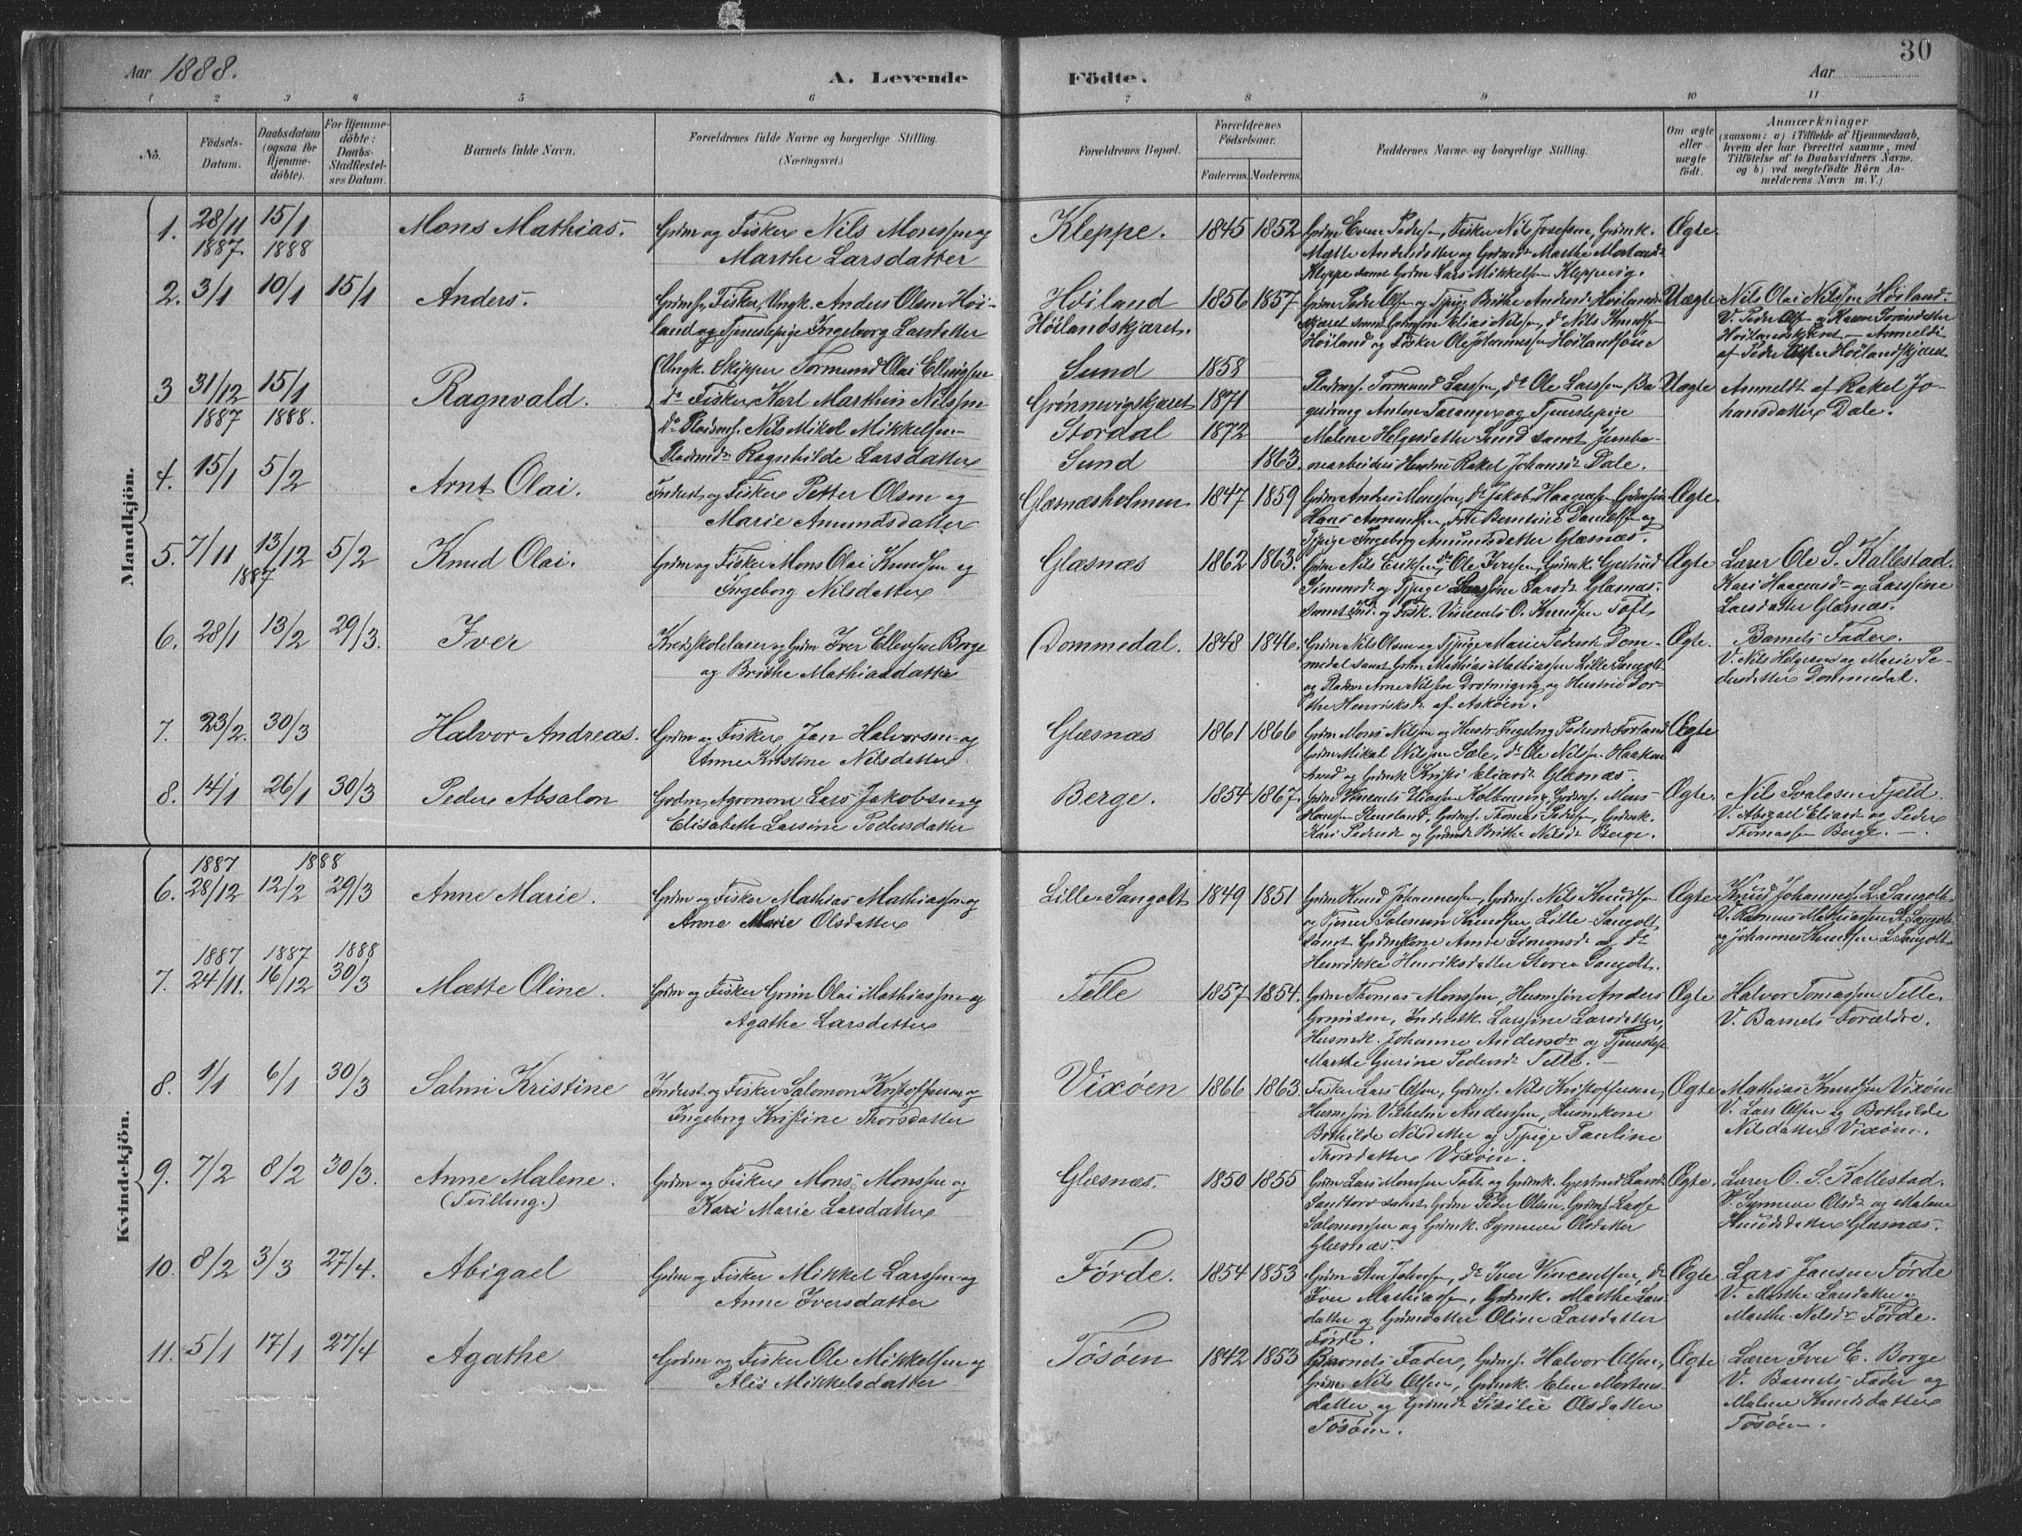 Aar 1888.
A. Levende Födte.
Aar
30
1 2 3 4 5 6 7 8 9 10 11
No.
Födsels-
Datum.
Daabsdatum
(ogsaa for
Hjemme-
döbte).
For Hjemme-
döbte:
Daabs-
Stadfæstel-
ses Datum.
Barnets fulde Navn.
Forældrenes fulde Navne og borgerlige Stilling.
(Næringsvei.)
Forældrenes Bopæl.
Forældrenes
Födselsaar.
Faderens. Moderens.
Faddernes Navne og borgerlige Stilling.
Om ægte
eller
uægte
født.
Anmærkninger
(saasom: a) i Tilfælde af Hjemmedaab,
hvem der har forrettet samme, med
Tilföielse af to Daabsvidners Navne.
og b) ved uægtefödte Börn An-
melderens Navn m. V.)
Mandkjön.
1. 28/11 1887 15/1 1888 Mons Mathias.
Grdm og Fisker Nils Monssen og
Marthe Larsdatter
Kleppe. 1845 1852
Grdm Even Peders., Fisker Nils Josefsen, Grdmk.
Mætte Andersdatter og Grdmd. Marthe Monsd.
Kleppe samt Grdm Lars Mikkelsen Kleppevig.
Ægte.
2. 3/1 10/1 15/1 Anders.
Grdms, Fisker, Ungk. Anders Olsen Höi-
land og Tjenstepige Ingeborg Larsdatter
Höiland
Höilandskjæret.
1856 1857
Grdm Peder Olsen og Tjpige Brithe Andersd. Höilands-
skjæret samt Grdmsøn Elias Nilsen, do Nils Knudsen
Höiland og Fisker Ole Johannessen Höilandsøne
Uægte
Nils Olai Nilssen Höiland.
V. Peder Olsen og Karen
Höilandskjæret. Anmeldt
af Peder Olsen Höilandskjæret
3 31/12 1887 15/1 1888. Ragnvald.
Ungk. Skipper Tormund Olai Ellingsen
do Fisker Karl Marthin Nilssen
do Pladsms. Nils Mikal Mikkelsen
Pladsmdr Ragnhilde Larsdatter
Sund 1858
Grönnevigskjæret 1871
Stordal 1872
Sund 1863.
Pladsms. Tormund Larssen, do Ole Larssen, Ba-
Antone Taranger og Tjenstepige
Malene Helgesdatter Sund samt Jernba-
nearbeiders Hustru Rakel Johansdr Dale.
Uægte
Anmeldt af Rakel Jo-
hansdatter Dale.
4. 15/1 5/2 Arnt Olai.
Inderst og Fisker Petter Olsen og
Marie Amundsdatter
Glæsnæsholmen 1847 1859
Grdm Andreas Monssen, do Jakob Haagensen, Grdmsøn
Hans Amundsen, Berntine Danielsen og
Tjpige Ingeborg Amundsdatter Glæsnæs.
Ægte.
5. 7/11 13/12 1887 5/2 Knud Olai.
Grdm og Fisker Mons Olai Knudsen og
Ingeborg Nilsdatter
Glæsnæs 1862 1863.
Grdm Nils Eriksen, do Ole Iversen, Grdmk. Gjertrud
Simonsdr og Tjpige Larsine Larsdr Glæsnæs.
samt Ind. og Fisk. Vincents O. Knudsen Toft
Ægte
Lærer Ole S. Kallestad.
Kari Haagensdr og Larsine
Larsdatter Glæsnæs.
6. 28/1 13/2 29/3. Iver
Kredsskolelærer og Grdm Iver Ellevsen Borge
og Brithe Mathiasdatter
Dommedal. 1848 1846.
Grdm Nils Olsen og Tjpige Marie Pedersdr Dom-
medal samt Grdm Mathias Mathiassen Lille Sangolt
og Pladsm Arne Nilsen Drotningvig og Hustru Dor-
the Henriksdr af Askøen.
Ægte.
Barnets Fader.
V. Nils Helgesen og Marie Pe-
dersdatter Dommedal.
7. 23/2. 30/3 Halvor Andreas.
Grdm og Fisker Jan Halvorsen og
Anne Kristine Nilsdatter
Glæsnæs 1861 1866
Grdm Mons Nilsen og Hustr. Ingeborg Pedersd. Forland
Grdm Mikal Nilssen Sæle, do Ole Nilsen Haaken-
og Grdmk Kristi Eliasdr Glæsnæs.
Ægte
8. 14/1 26/1 30/3 Peder Absalon
Grdm, Agronom Lars Jakobsen og
Elisabeth Larsine Pedersdatter
Berge. 1854 1867.
Grdm Vincents Eliassen Kolbeinsvig, Grdms. Mons
Hansen Steensland, Grdms. Thomas Peders., Grdmk.
Kari Pedersdr og Grdmd. Brithe Nilsdr Berge.
Ægte.
Nils Svalesen Fjeld.
V. Abigael Eliasdr og Peder
Thomassen Berge.
Kvindekjön.
6. 1887 28/12 1888 12/2 29/3 Anne Marie.
Grdm og Fisker Mathias Mathiassen og
Anne Marie Olsdatter
Lille-Sangolt 1849 1851
Grdm Knud Johannessen, Grdms. Nils Knudsen
og Tjener Salomon Knudsen Lille Sangolt
samt Grdmskone Andrea Simonsdr og do
Henrikke Henriksdatter Store Sangolt.
Ægte
Knud Johannes. L. Sangolt
V. Rasmus Mathiassen St. Sangolt
og Johannes Knudsen L. Sangolt
7. 1887 24/11. 1887 16/12 1888 30/3 Mætte Oline.
Grdm og Fisker Grim Olai Mathiassen og
Agathe Larsdatter
Telle 1857 1854.
Grdm Thomas Monssen, Husmsøn Anders
Grimsen, Inderstk. Larsine Larsdatter,
Husmk. Johanne Andersdr og Tjenstep.
Marthe Gurine Pedersdr Telle.
Ægte
Halvor Tomassen Telle.
V. Barnets Forældre.
8. 1/1 6/1 30/3 Salmi Kristine
Inderst og Fisker Salomon Kristoffersen og
Ingeborg Kristine Thorsdatter
Vixøen 1866 1863.
Fisker Lars Olsen, Grdms. Nils Kristoffersen,
Husmsøn Vilhelm Andersen, Husmkone
Bothilde Nilsdatter og Tjpige Pauline
Thorsdatter Vixøen.
Ægte
Mathias Knudsen Vixøen
V. Lars Olsen og Bothilde
Nilsdatter Vixøen.
9. 7/2 8/2 30/3. Anne Malene.
(Tvilling.)
Grdm og Fisker Mons Monssen og
Kari Marie Larsdatter
Glæsnæs. 1850 1855
Grdm Lars Monssen Toft og Grdmk. Gjertrud Larsdr
Sandtorv samt Grdm Peder Olsen, Grdms. Lasse
Salomonsen og Grdmk. Synneve Olsdatter
Glæsnæs.
Ægte.
Lærer O. S. Kallestad.
V. Synneve Olsdr og Malene
Knudsdatter Glæsnæs.
10. 8/2 3/3 27/4. Abigael
Grdm og Fisker Mikkel Larssen og
Anne Iversdatter
Förde. 1854 1853
Grdm Sten Johnsen, do Iver Vincentsen, do
Iver Mathiassen, Grdmk. Marthe Lars-
datter og Grdmdatter Oline Larsdatter
Förde.
Ægte
Lars Jansen Förde
V. Marthe Larsdatter og
Marthe Nilsdr Förde.
11. 5/1 17/1 27/4 Agathe
Grdm og Fisker Ole Mikkelsen og
Alis Mikkelsdatter
Tösöen 1842 1853
Barnets Fader, Grdms. Halvor Olsen,
Grdm Nils Olsen, Grdmk. Elen Mortens-
datter og Grdmdr Sisilie Olsdatter
Tösöen.
Ægte
Lærer Iver E. Borge
V. Barnets Fader og
Malene Knudsdatter
Tösöen.